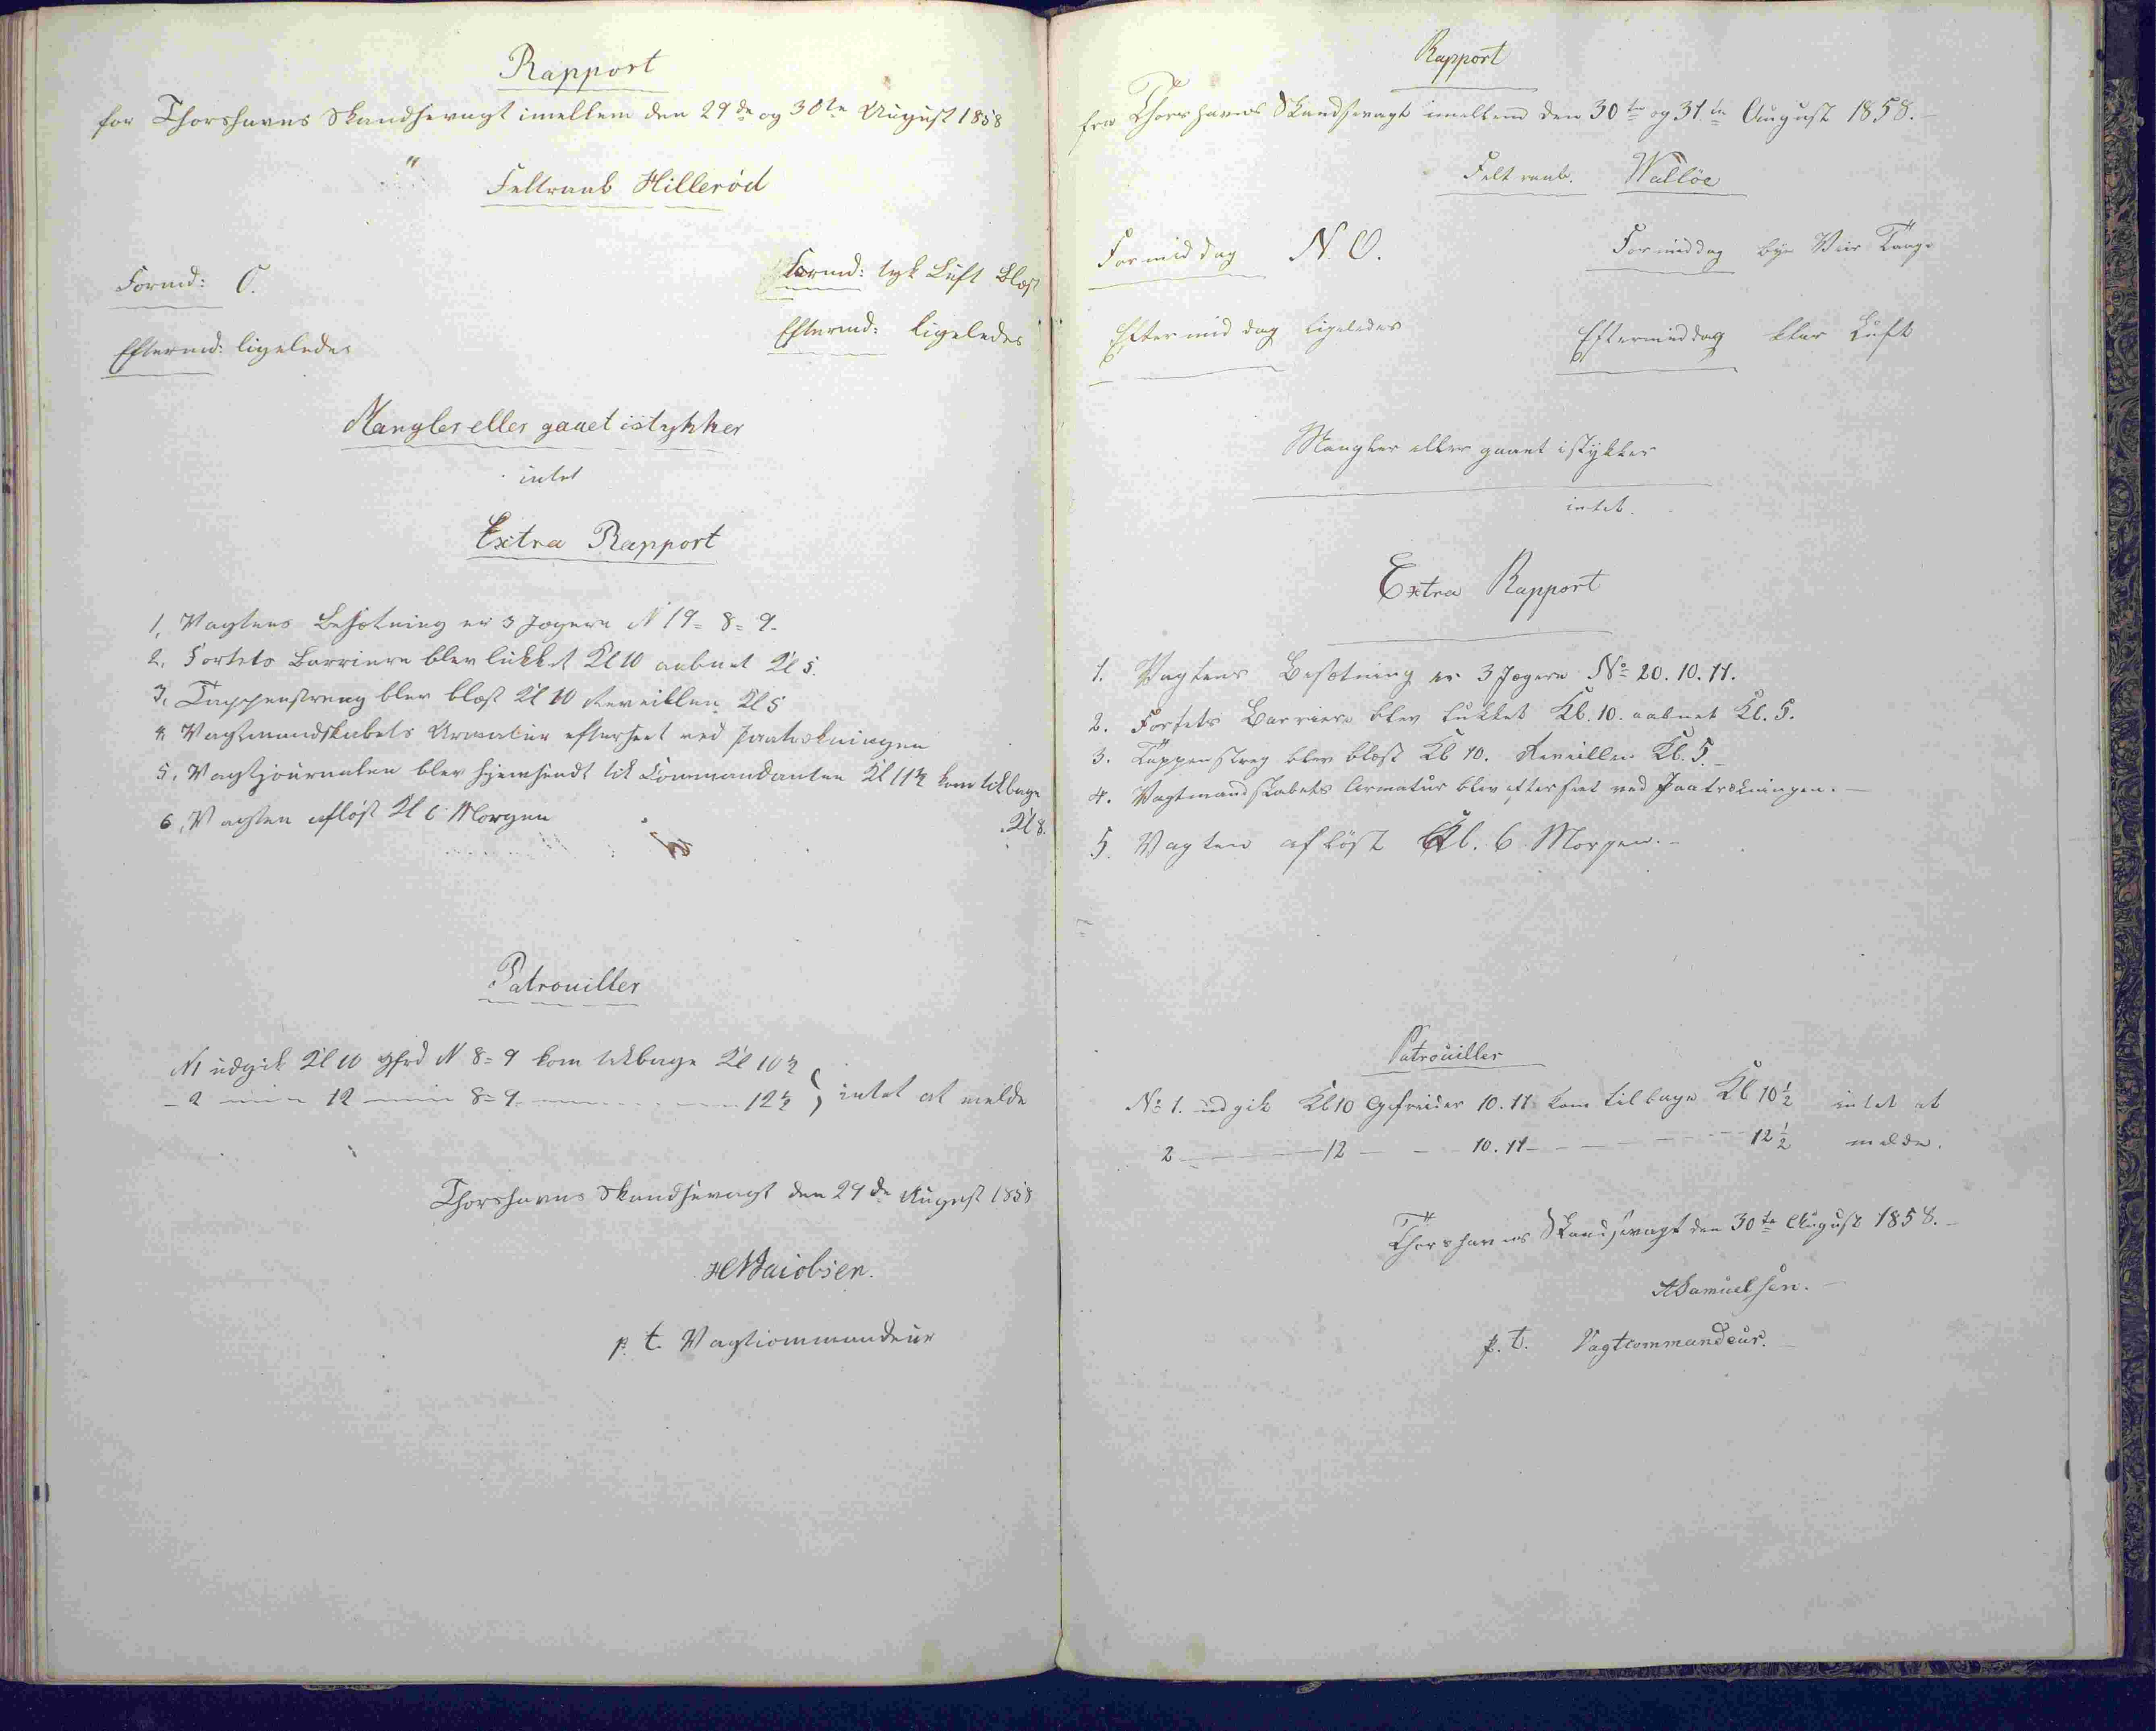 Rapport
for Thorshavns Skandsevagt imellem den 29de og 30te August 1858
Feltraab Hillerød
Formd: O.
Formd: tyk Luft Blæst
Eftermd: ligeledes
Eftermd: ligeledes
Mangler eller gaaet istykker
intet
Extra Rapport
1, Vagtens Besætning er 3 Jægere N 19= 8= 9.
2, Fortets Barriere blev lukket Kl 10 aabnet Kl 5.
3, Tappenstreng blev blæst Kl 10 Reveillen Kl 5
4, Vagtmandskabets Armatur efterseet ved Paatrækningen
5, Vagtjournalen blev hjemsendt til Commandanten Kl 11½ kom tilbage
Kl 8.
6, Vagten afløst Kl 6 Morgen
Patrouiller
N1 udgik Kl 10 Gfrd N 8= 9 kom tilbage Kl 10½
- 2 — 12 — 8= 9 — 12½ } intet at melde
Thorshavns Skandsevagt den 29de August 1858
HJacobsen.
p. t. Vagtcommandeur
Rapport
fra Thorshavns Skandsevagt imellem den 30te og 31te August 1858.-
Feltraab. Walløe
Formiddag N. O.
Formiddag Taage
Eftermiddag ligeledes
Eftermiddag klar Luft
Mangler eller gaaet istykker
intet.
Extra Rapport
1. Vagtens Besætning er 3 Jægere No 20. 10. 11.
2. Fortets Barriere blev lukket Kl. 10. aabnet Kl. 5.
3. Tappenstreg blev blæst Kl 10. Reveillen Kl. 5.-
4. Vagtmandskabets Armatur blev efterseet ved Paatrækningen.-
5. Vagten afløst Kl. 6 Morgen.-
Patrouiller
No 1. udgik Kl 10 Gefreider 10. 11 kom tilbage Kl 10½ intet at
2 — 12 — 10. 11 — 12½ melde.
Thorshavns Skandsevagt den 30te August 1858.-
ASamuelsen.-
p. t. Vagtcommandeur.-